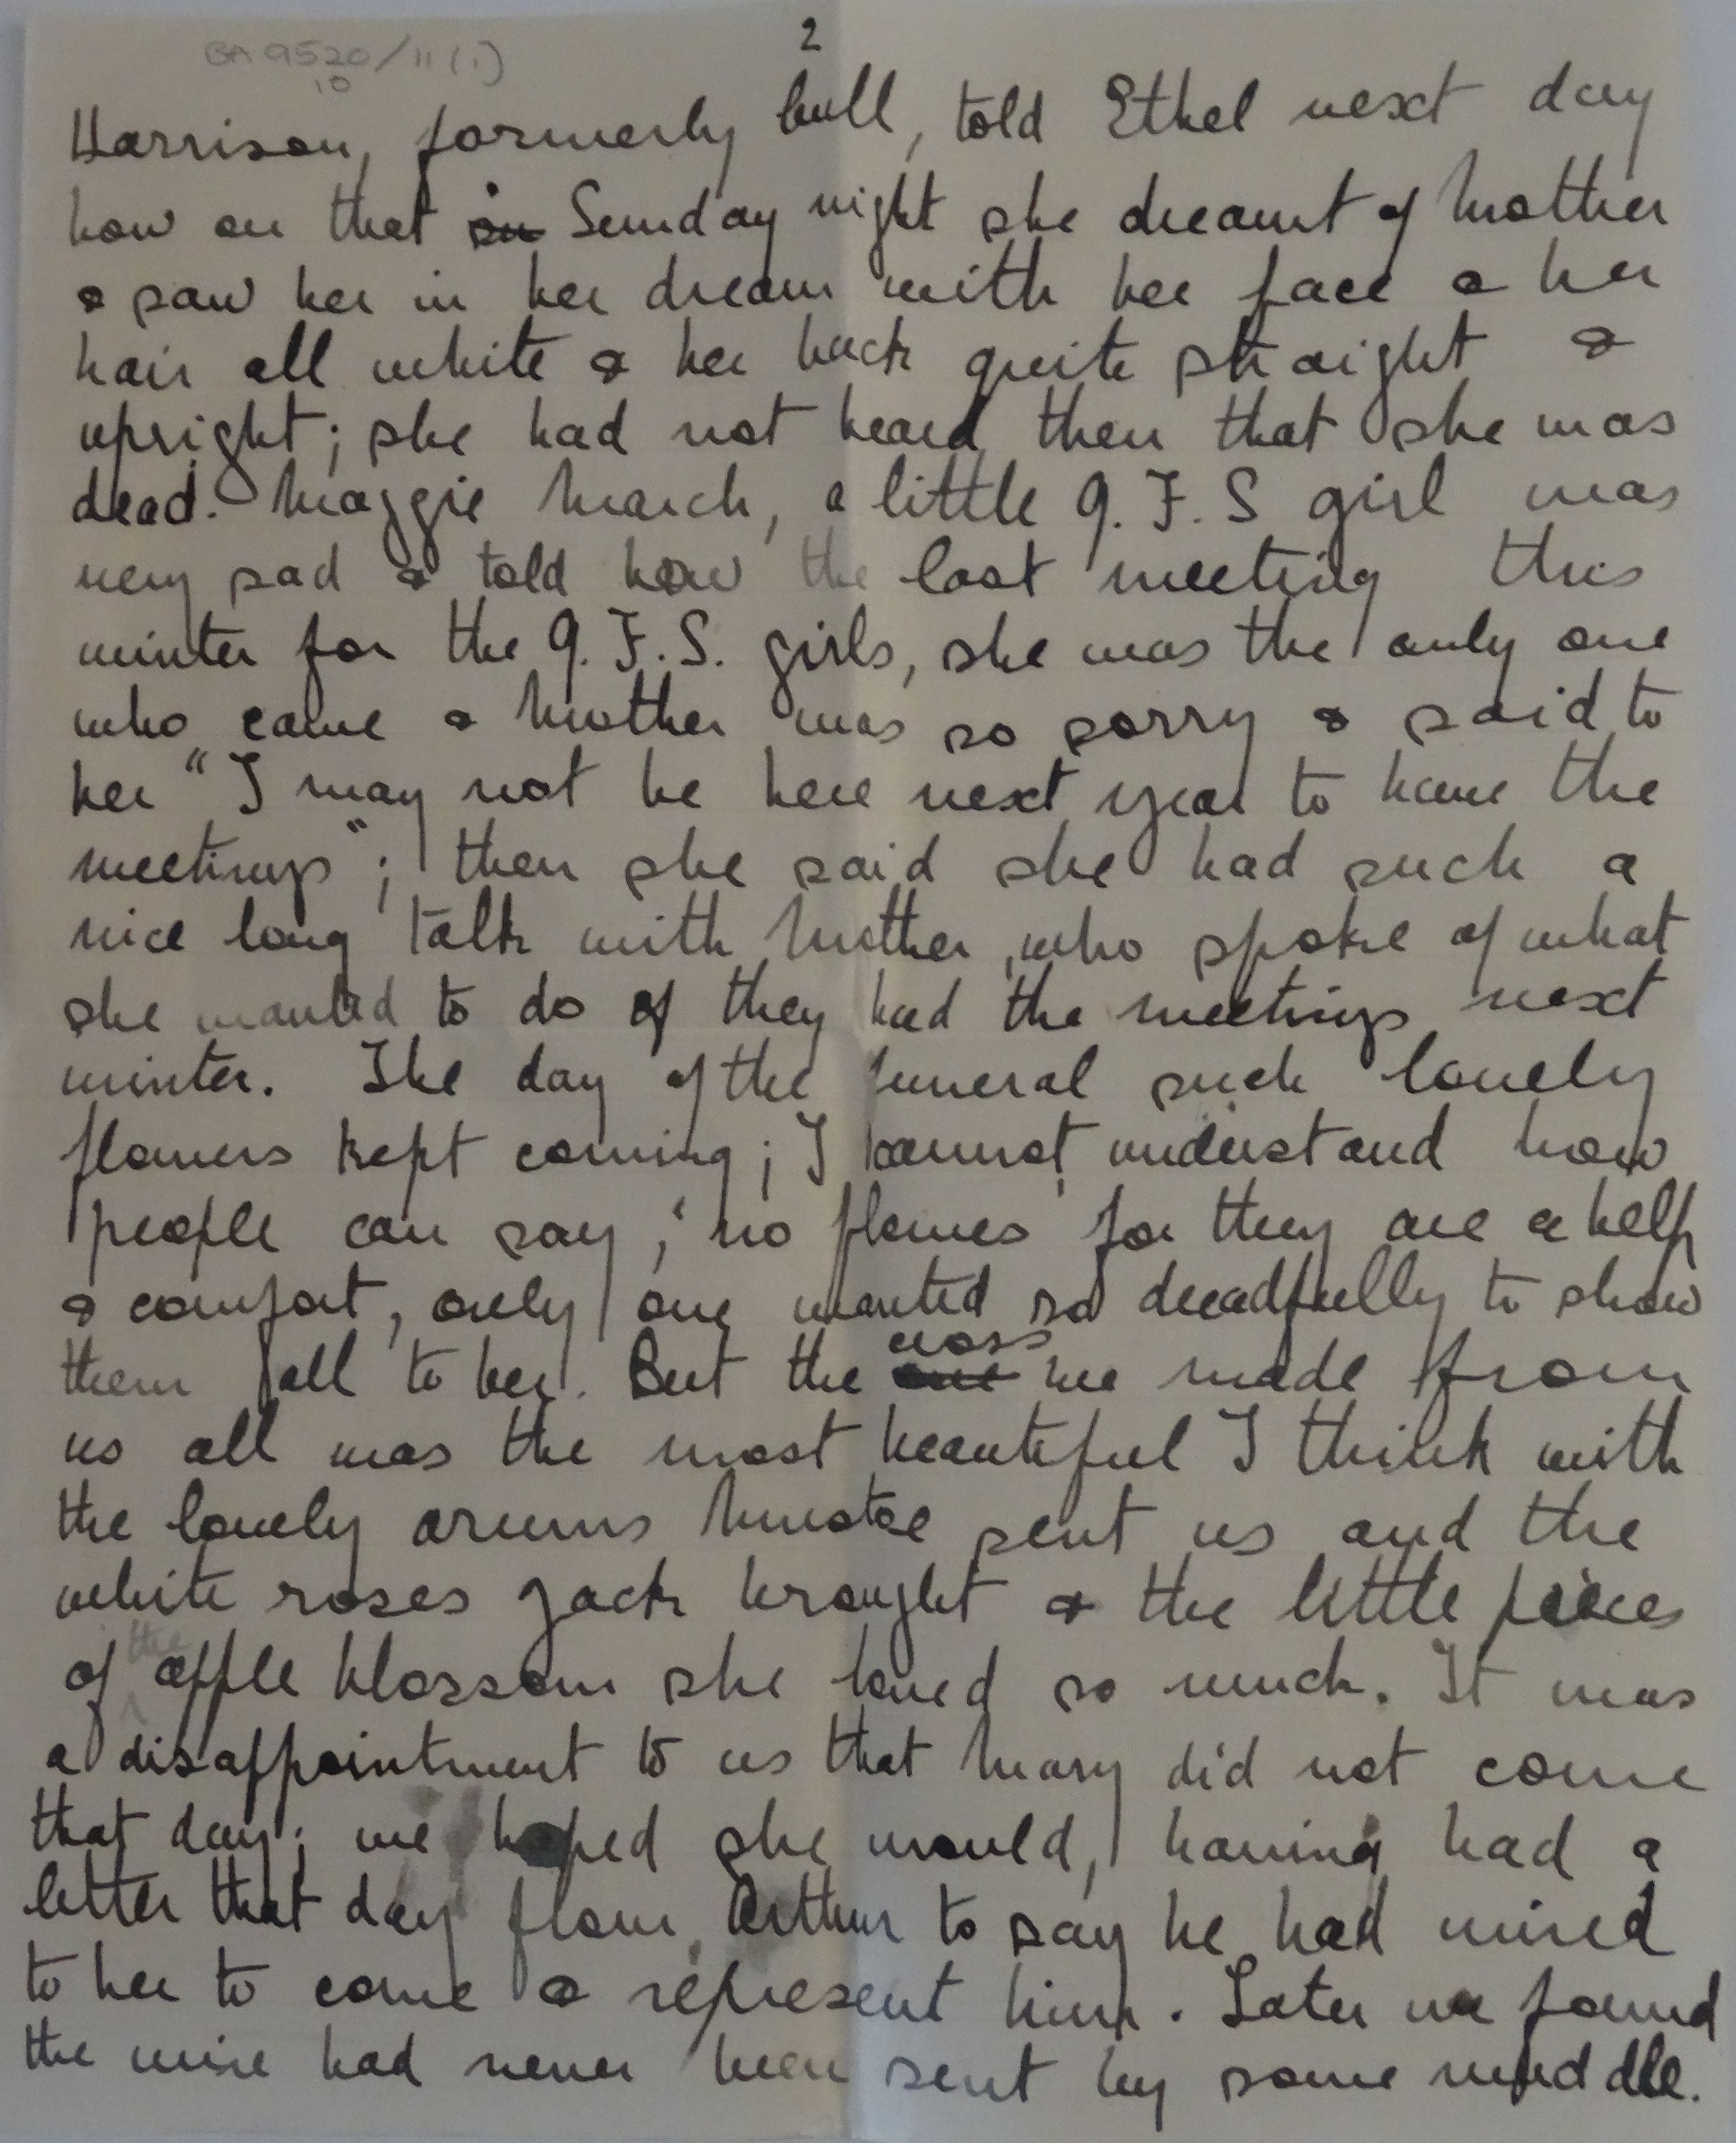 BA 9520/11(1)
10
2
Harrison, formerly bull, told Ethel next day
how on that su Sunday night she dreamt of Mother
& saw her in her dream with her face & her
hair all white & her back quite straight &
upright; she had not heard then that she was
dead. Maggie March, a little G.F.S girl was
very sad & told how the last meeting this
winter for the G.F.S. girls, she was the only one
who came & Mother was so sorry & said to
her "I may not be here next year to have the
meetings"; then she said she had such a
nice long talk with Mother, who spoke of what
she wanted to do if they had the meetings next
winter. The day of the funeral such lovely
flowers kept coming; I cannot understand how
people can say, 'no flowers' for they are a help
& comfort, only one wanted so dreadfully to show
them all to her. But the one cross we made from
us all was the most beautiful I think with
the lovely arums sent us and the
white roses Jack brought & the little pieces
of the apple blossom she loved so much. It was
a disappointment to us that Mary did not come
that day; we hoped she would, having had a
letter that day from Arthur to say he had wired
to her to come & represent him. Later we found
the wire had never been sent by some muddle.